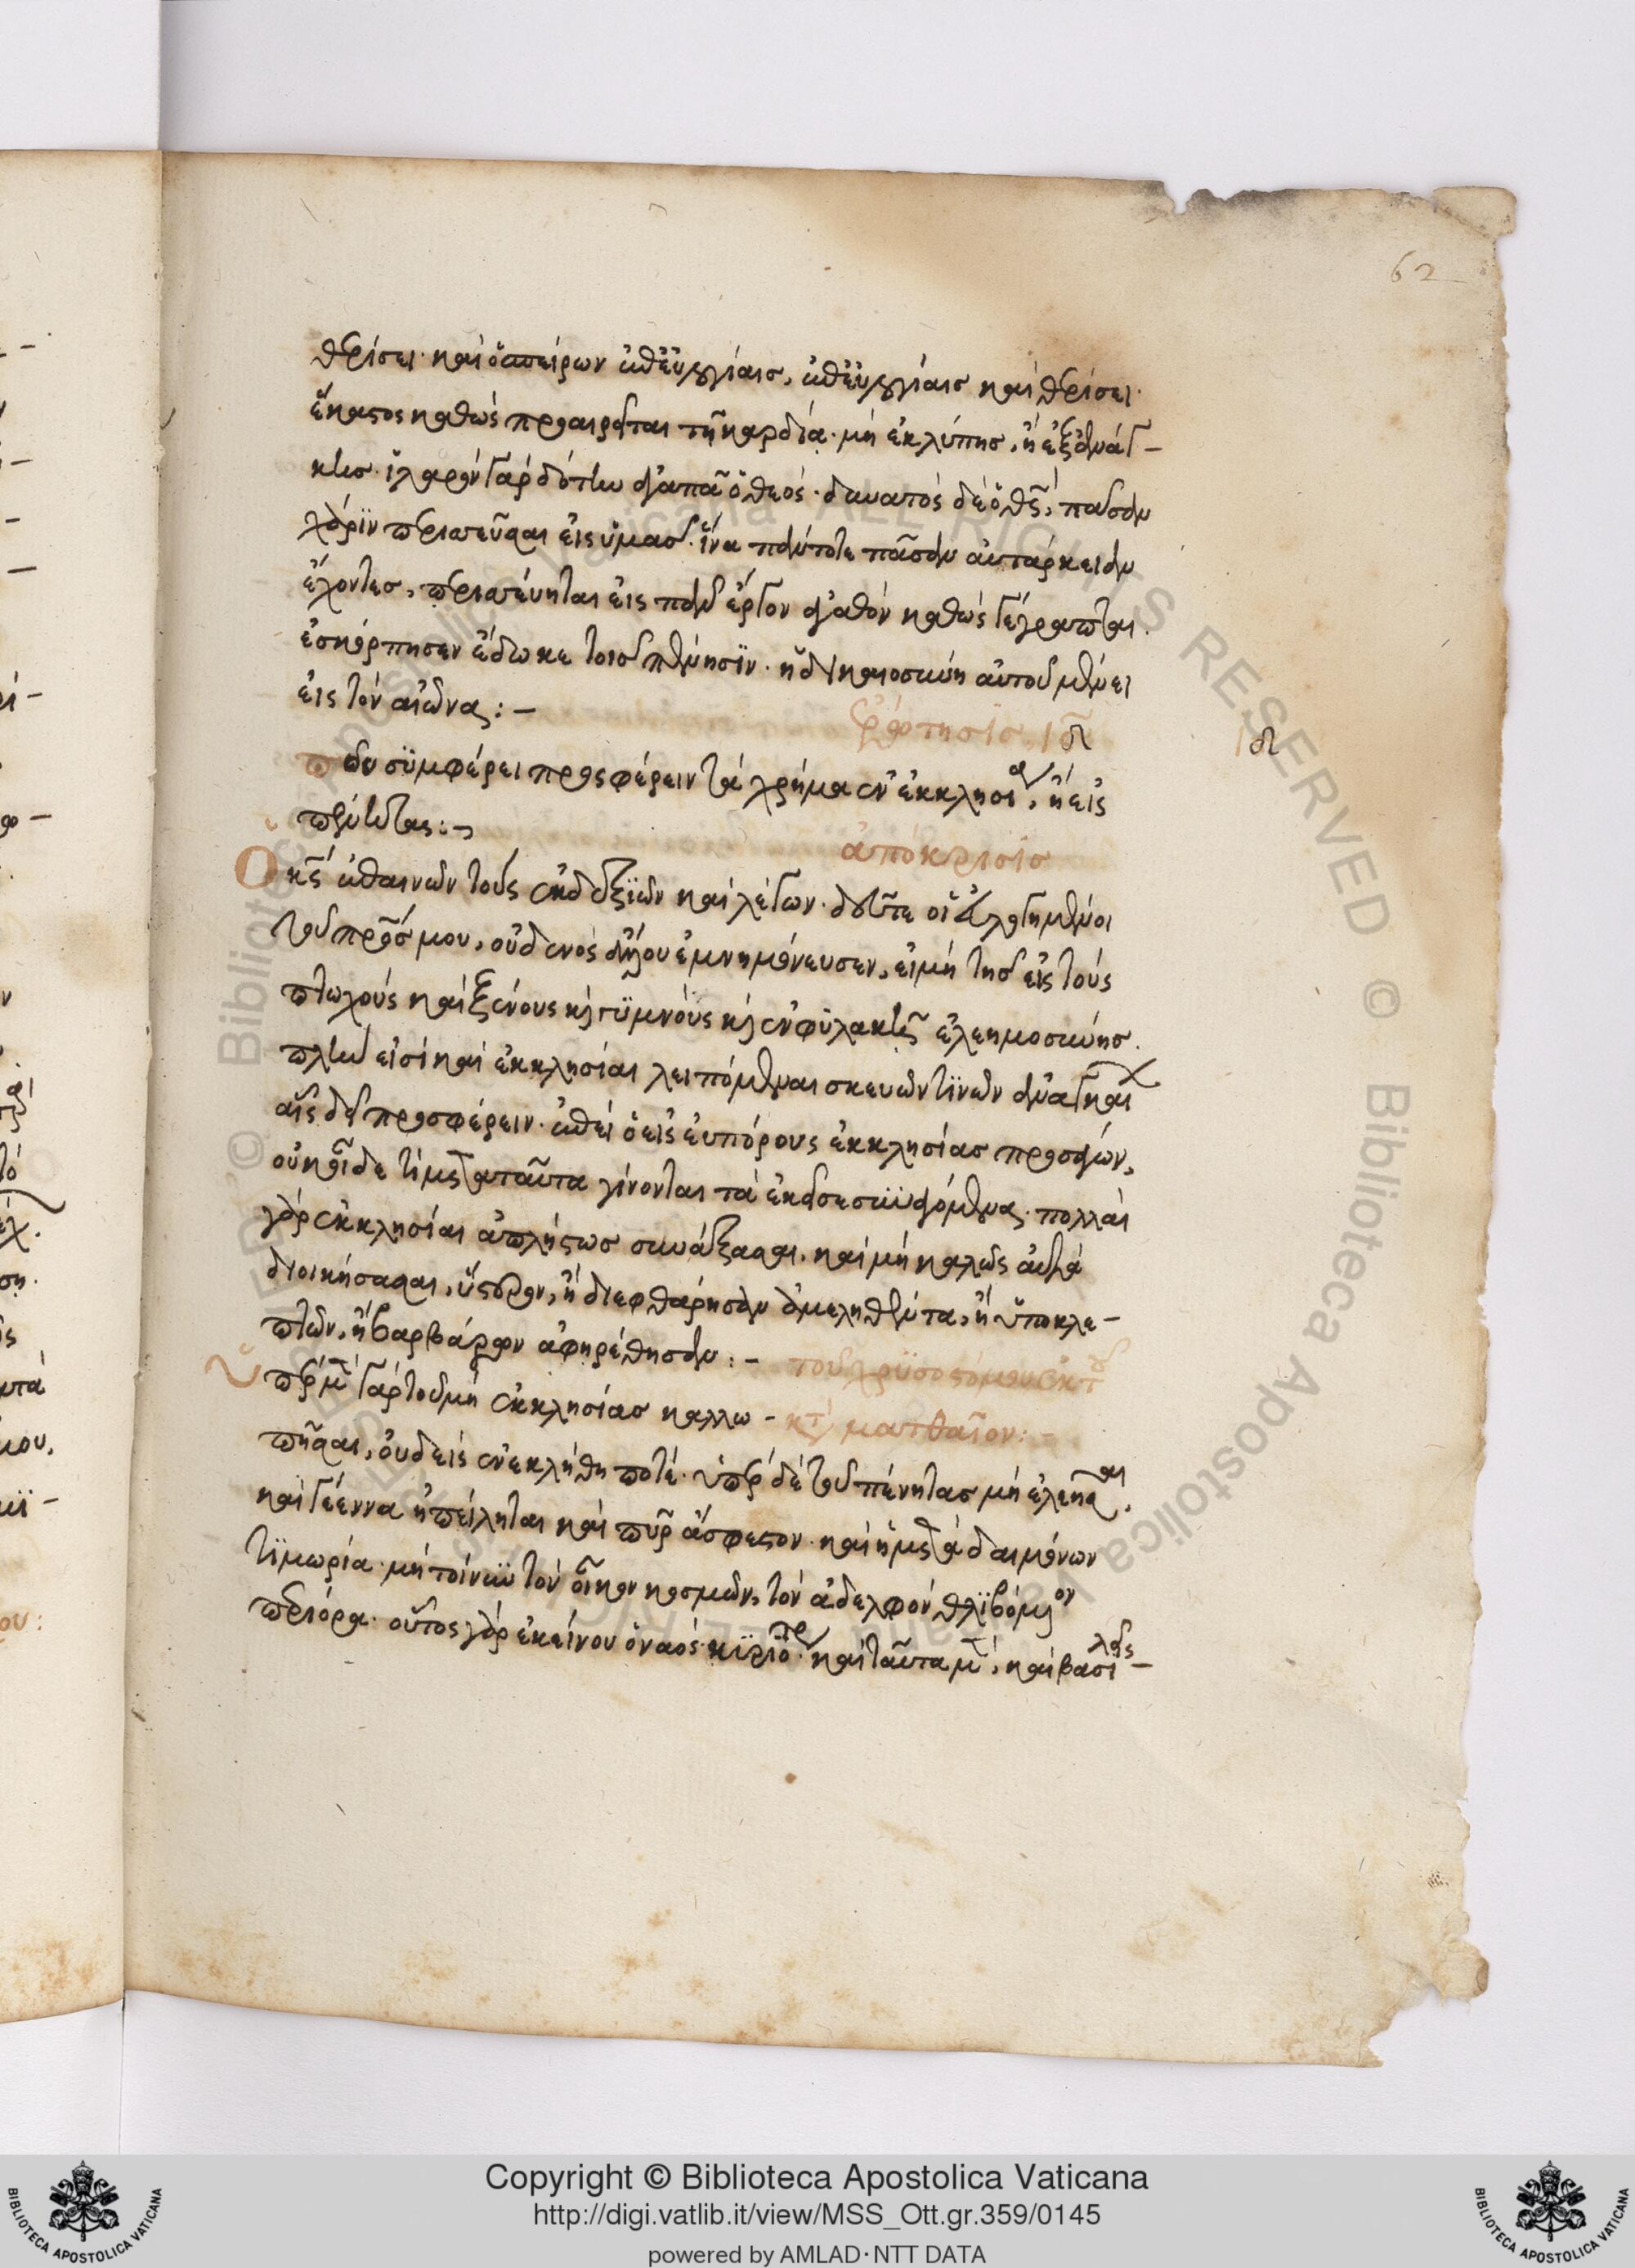 62
θερίσει· καὶ ὁ σπείρων ἐπ' εὐλογίαις, ἐπ' εὐλογίαις καὶ θερίσει·
ἕκαστος καθὼς προαιρεῖται τῆ καρδία· μὴ ἐκ λύπης, ἢ ἐξ ἀνάγ-
κης· ἱλαρὸν γὰρ δότην ἀγαπᾶ ὁ θεός· δυνατὸς δὲ ὁ θς, πᾶσαν
χάριν περισσεῦσαι εἰς ὑμᾶς· ἵνα πάντοτε πᾶσαν αὐτάρκειαν
ἔχοντες, περισσεύηται εἰς πᾶν ἔργον ἀγαθὸν καθὼς γέγραπται·
ἐσκόρπησεν ἔδωκε τοῖς πένησϊν· ἡ δικαιοσύνη αὐτοῦ μένει
εἰς τὸν αἰῶνα:-
ἐρώτησις ιδ
ιδ
ποῦ συμφέρει προσφέρειν τὰ χρήμα ἐν ἐκκλησία, ἢ εἰς
πένητας:-
ἀπόκρισις
Ὁ κς ἐπαινῶν τοὺς ἐκ δεξϊῶν καὶ λέγων· δεῦτε οἱ εὐλογημένοι
τοῦ πρς μου, οὐδενὸς ἄλλου ἐμνημόνευσεν, εἰ μὴ τῆς εἰς τοὺς
πτωχοὺς καὶ ξένους κὶ γϋμνοὺς κὶ ἐν φυλακῆ ἐλεημοσύνης·
πλὴν εἰσὶ καὶ ἐκκλησίαι λειπόμεναι σκευῶν τινῶν ἀναγκαί
αἷς δεῖ προσφέρειν· ἐπεὶ ὁ εἰς εὐπόρους ἐκκλησίας προσάγων,
οὐκ οἶδε τί μετὰ ταῦτα γίνονται τὰ ἐκεῖσε συναγόμενα· πολλαὶ
γὰρ ἐκκλησίαι ἀπλήστως συνάξασαι, καὶ μὴ καλῶς αὐτὰ
διοικήσασαι, ὕστερον, ἢ διεφθάρησαν ἀμεληθέντα, ἢ ὑπὸ κλε-
πτῶν, ἢ βαρβάρων ἀφηρέθησαν:- τοῦ χρϋσοστόμου ἐκ τοῦ
Ὑπὲρ μὲν γὰρ τοῦ μὴ ἐκκλησίας καλλω- κτ ματθαῖον:-
πῆσαι, οὐδεὶς ἐνεκλήθη ποτέ· ὑπὲρ δὲ τοῦ πένητας μὴ ἐλεῆσαι,
καὶ γέεννα ἠπείληται καὶ πῦρ ἄσβεστον· καὶ ἡ μετὰ δαιμόνων
τϊμωρία· μὴ τοίνυν τὸν οἶκον κοσμῶν, τὸν ἀδελφὸν θλϊβόμενον
περιόρα· οὗτος γὰρ ἐκείνου ὁ ναὸς κϋριώτερο· καὶ ταῦτα μὲν, καὶ βασιλεῖς-
Copyright © Biblioteca Apostolica Vaticana
http://digi.vatlib.it/view/MSS_Ott.gr.359/0145
powered by AMLAD·NTT DATA